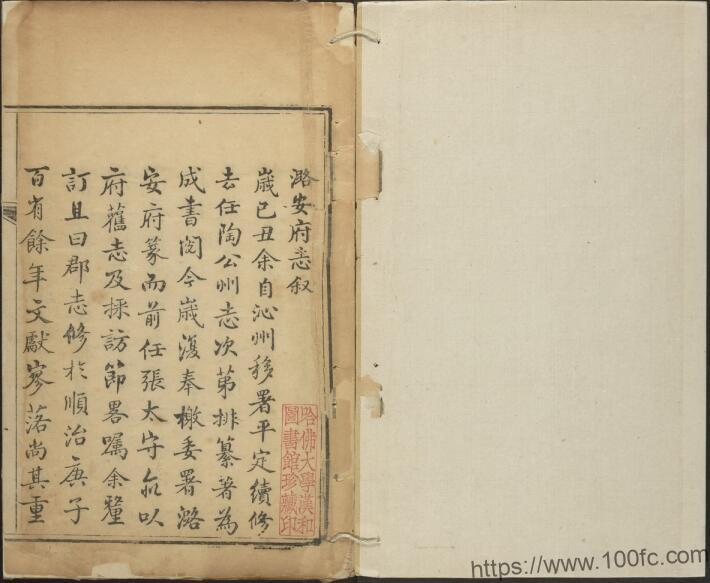 潞安府志叙
歲已丑余自沁州移署平定續修
去任陶公州志次第排纂著為
成書閱今歲復奉檄委署潞
安府篆而前任張太守亦以
府舊志及採訪節畧囑余釐
訂且曰郡志修於順治庚子
百有餘年文獻寥落尚其重
哈佛大學漢和
圖書館珍藏印
https://www.100fc.com